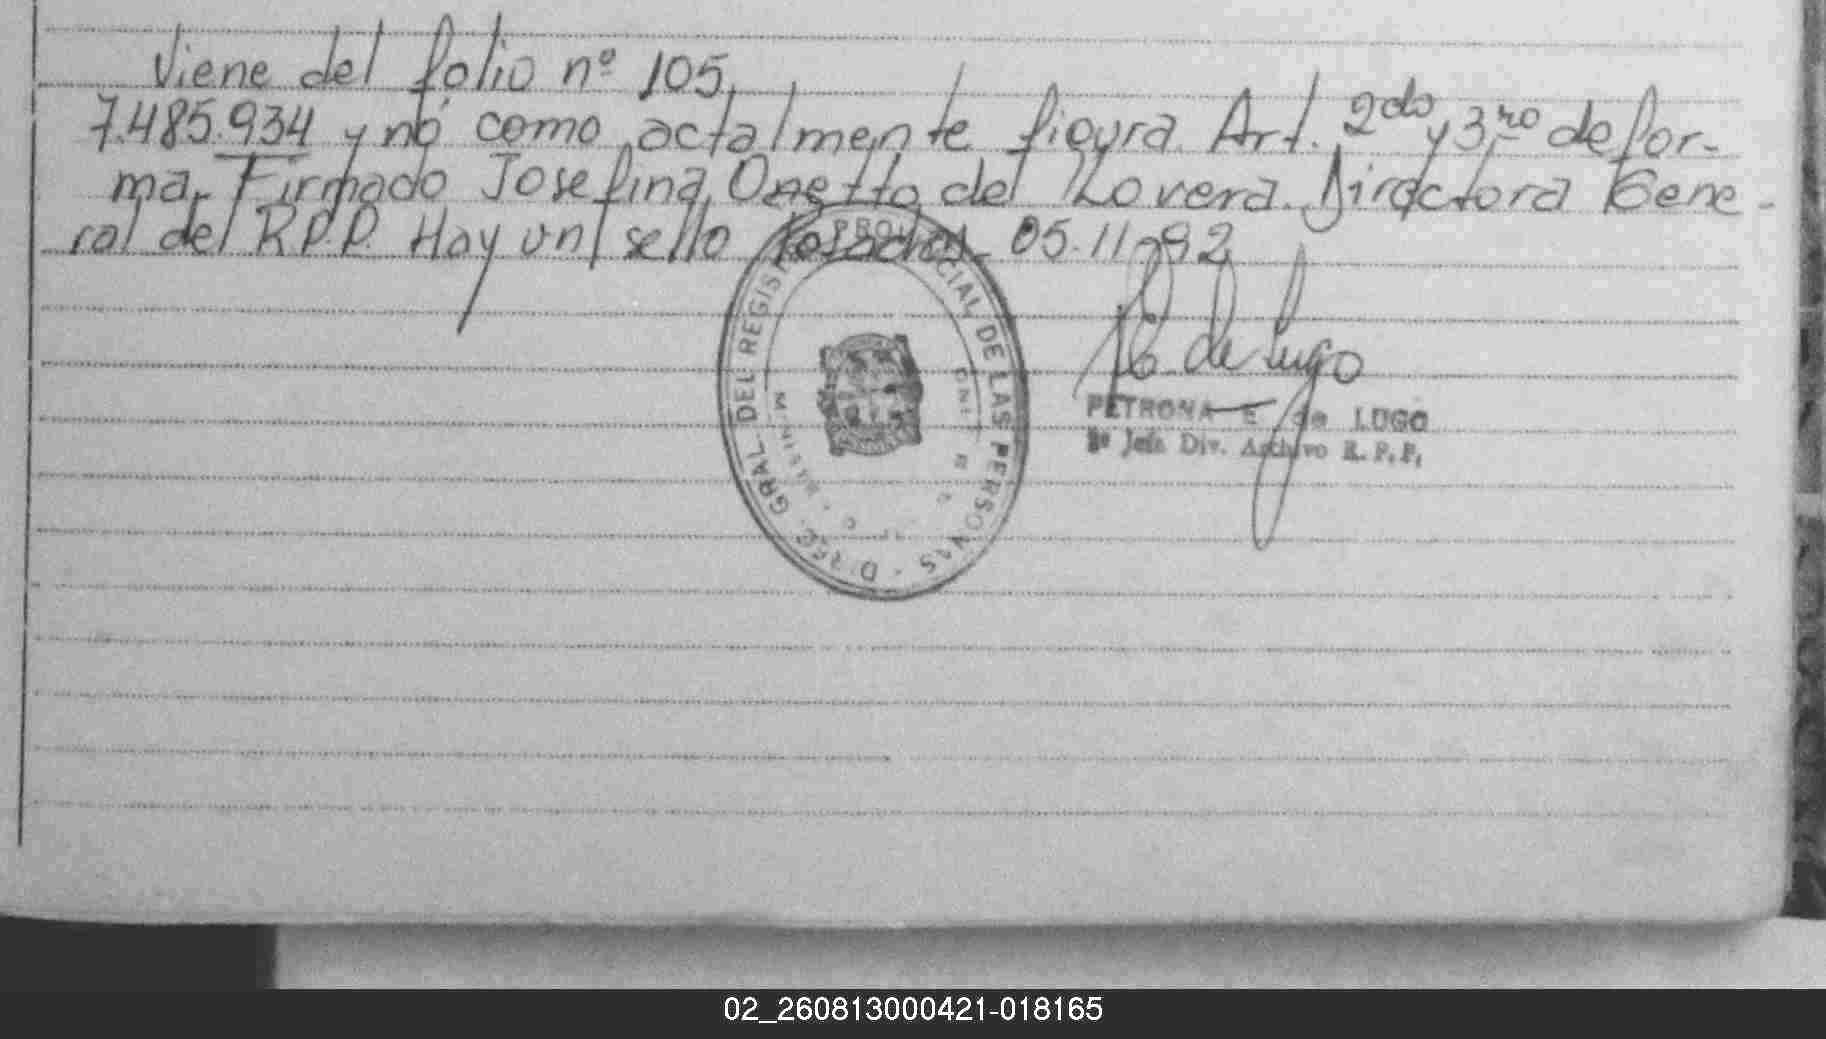 Viene del folio nº 105.
7.485.934 y no como actalmente figura. Art. 2do y 3ro de for-
ma. Firmado Josefina Onetto del Lovera. Directora Gene-
ral del R.P.P. Hay un sello Posadas 05.11.92
DIREC. GRAL. DEL REGISTRO PROVINCIAL DE LAS PERSONAS -
de Lugo
PETRONA E. de LUGO
Jefa Div. Archivo R. P. P.
02_260813000421-018165